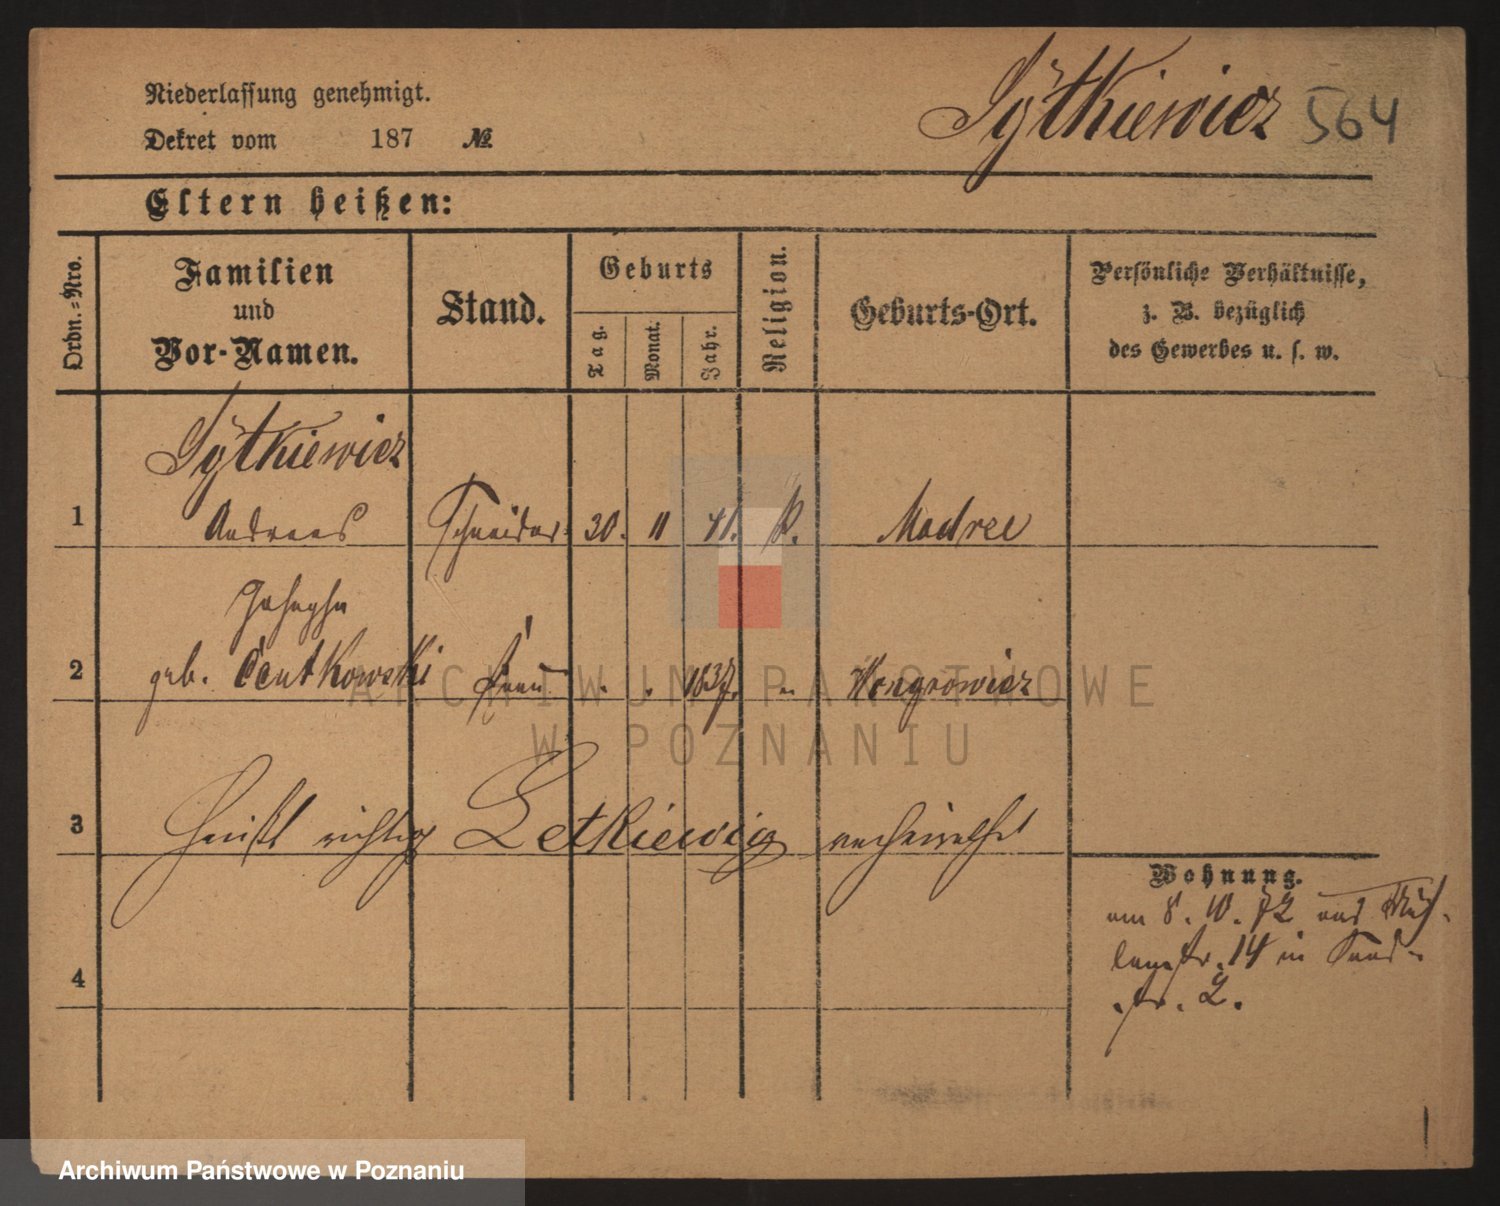 Niederlassung genehmigt.
Dekret vom 187 №
Sÿtkiewicz 564
Eltern heißen:
Ordn.=Nro.
Familien
und
Vor-Namen.
Stand.
Geburts
Tag.
Monat.
Jahr.
Religion.
Geburts-Ort.
Persönliche Verhältnisse,
z. B. bezüglich
des Gewerbes u. s. w.
Sÿtkiewicz
1 Andreas Schneider 30. 11 41. k. Modrce
Josepha
2 geb. Centkowski Frau . . 1837. " Wongrowicz
3 heißt richtig Letkiewicz
4
Wohnung.
am 8. 10. 72 aus
14 in
str. 2.
ARCHIWUM PAŃSTWOWE
W POZNANIU
Archiwum Państwowe w Poznaniu